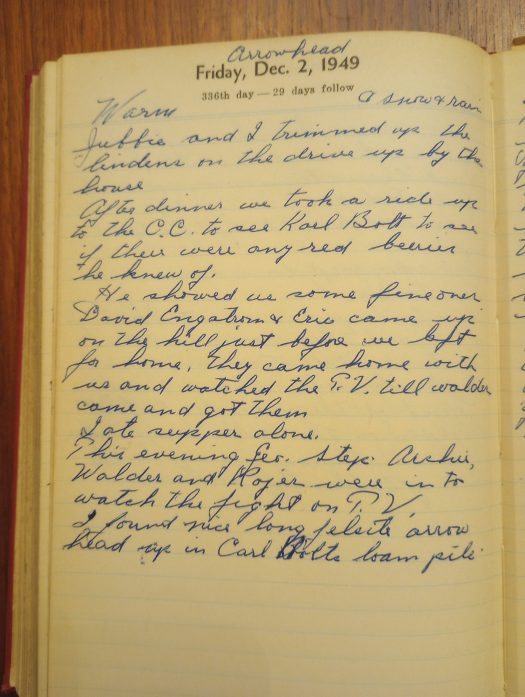 Arrowhead
Friday, Dec. 2, 1949
336th day — 29 days follow
Warm snow & rain
and I trimmed up the
lindens on the drive up by the
house
After dinner we took a ride up
to the C.C. to see Karl Bolt to see
if their were any red berries
he knew of.
He showed us some fine ones
David Engstrom & Eric came up
on the hill just before we left
for home. They came home with
us and watched the T.V. till Walder
came and got them
I ate supper alone.
This evening Geo. Step. Archie,
Walder and Rojer were in to
watch the fight on T.V.
I found nice long felsite arrow
head up in Carl Bolts loam pile